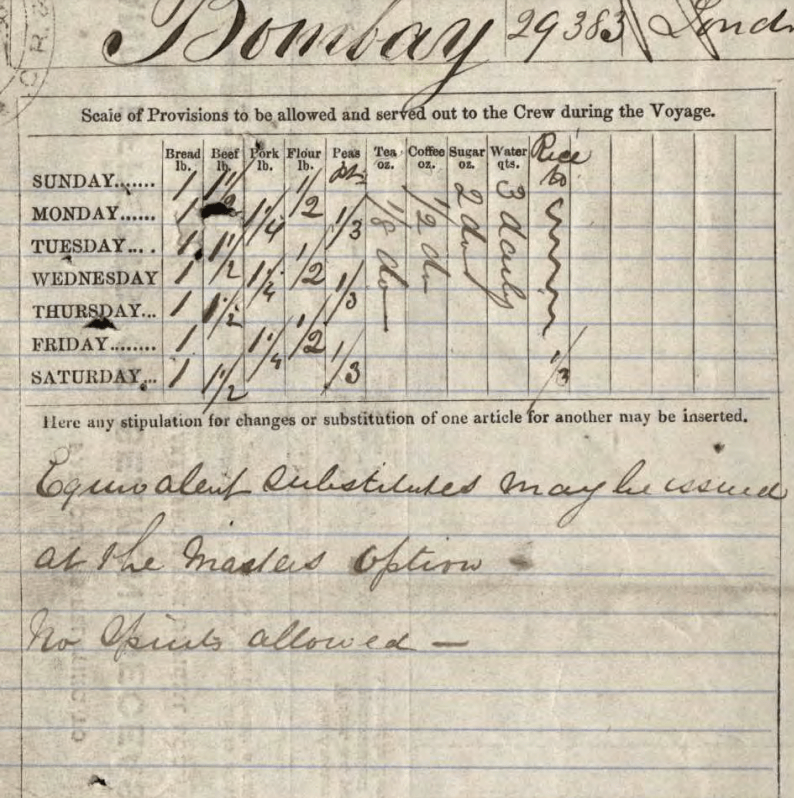 Bombay 29383 Lond
Scale of Provisions to be allowed and served out to the Crew during the Voyage.
Bread lb. Beef lb. Pork lb. Flour lb. Peas Tea oz. Coffee oz. Sugar oz. Water qts. Rice
SUNDAY....... 1 1 1/2 1/2 pt 1/8 do 1/2 do 2 do 3 daily
MONDAY...... 1 1 1/4 1/3
TUESDAY.... 1 1 1/2 1/2
WEDNESDAY 1 1 1/4 1/3
THURSDAY... 1 1 1/2 1/2
FRIDAY........ 1 1 1/4 1/3
SATURDAY... 1 1 1/2 1/3
Here any stipulation for changes or substitution of one article for another may be inserted.
Equivalent substitutes may be issued
at the Masters option
No Spirits allowed —